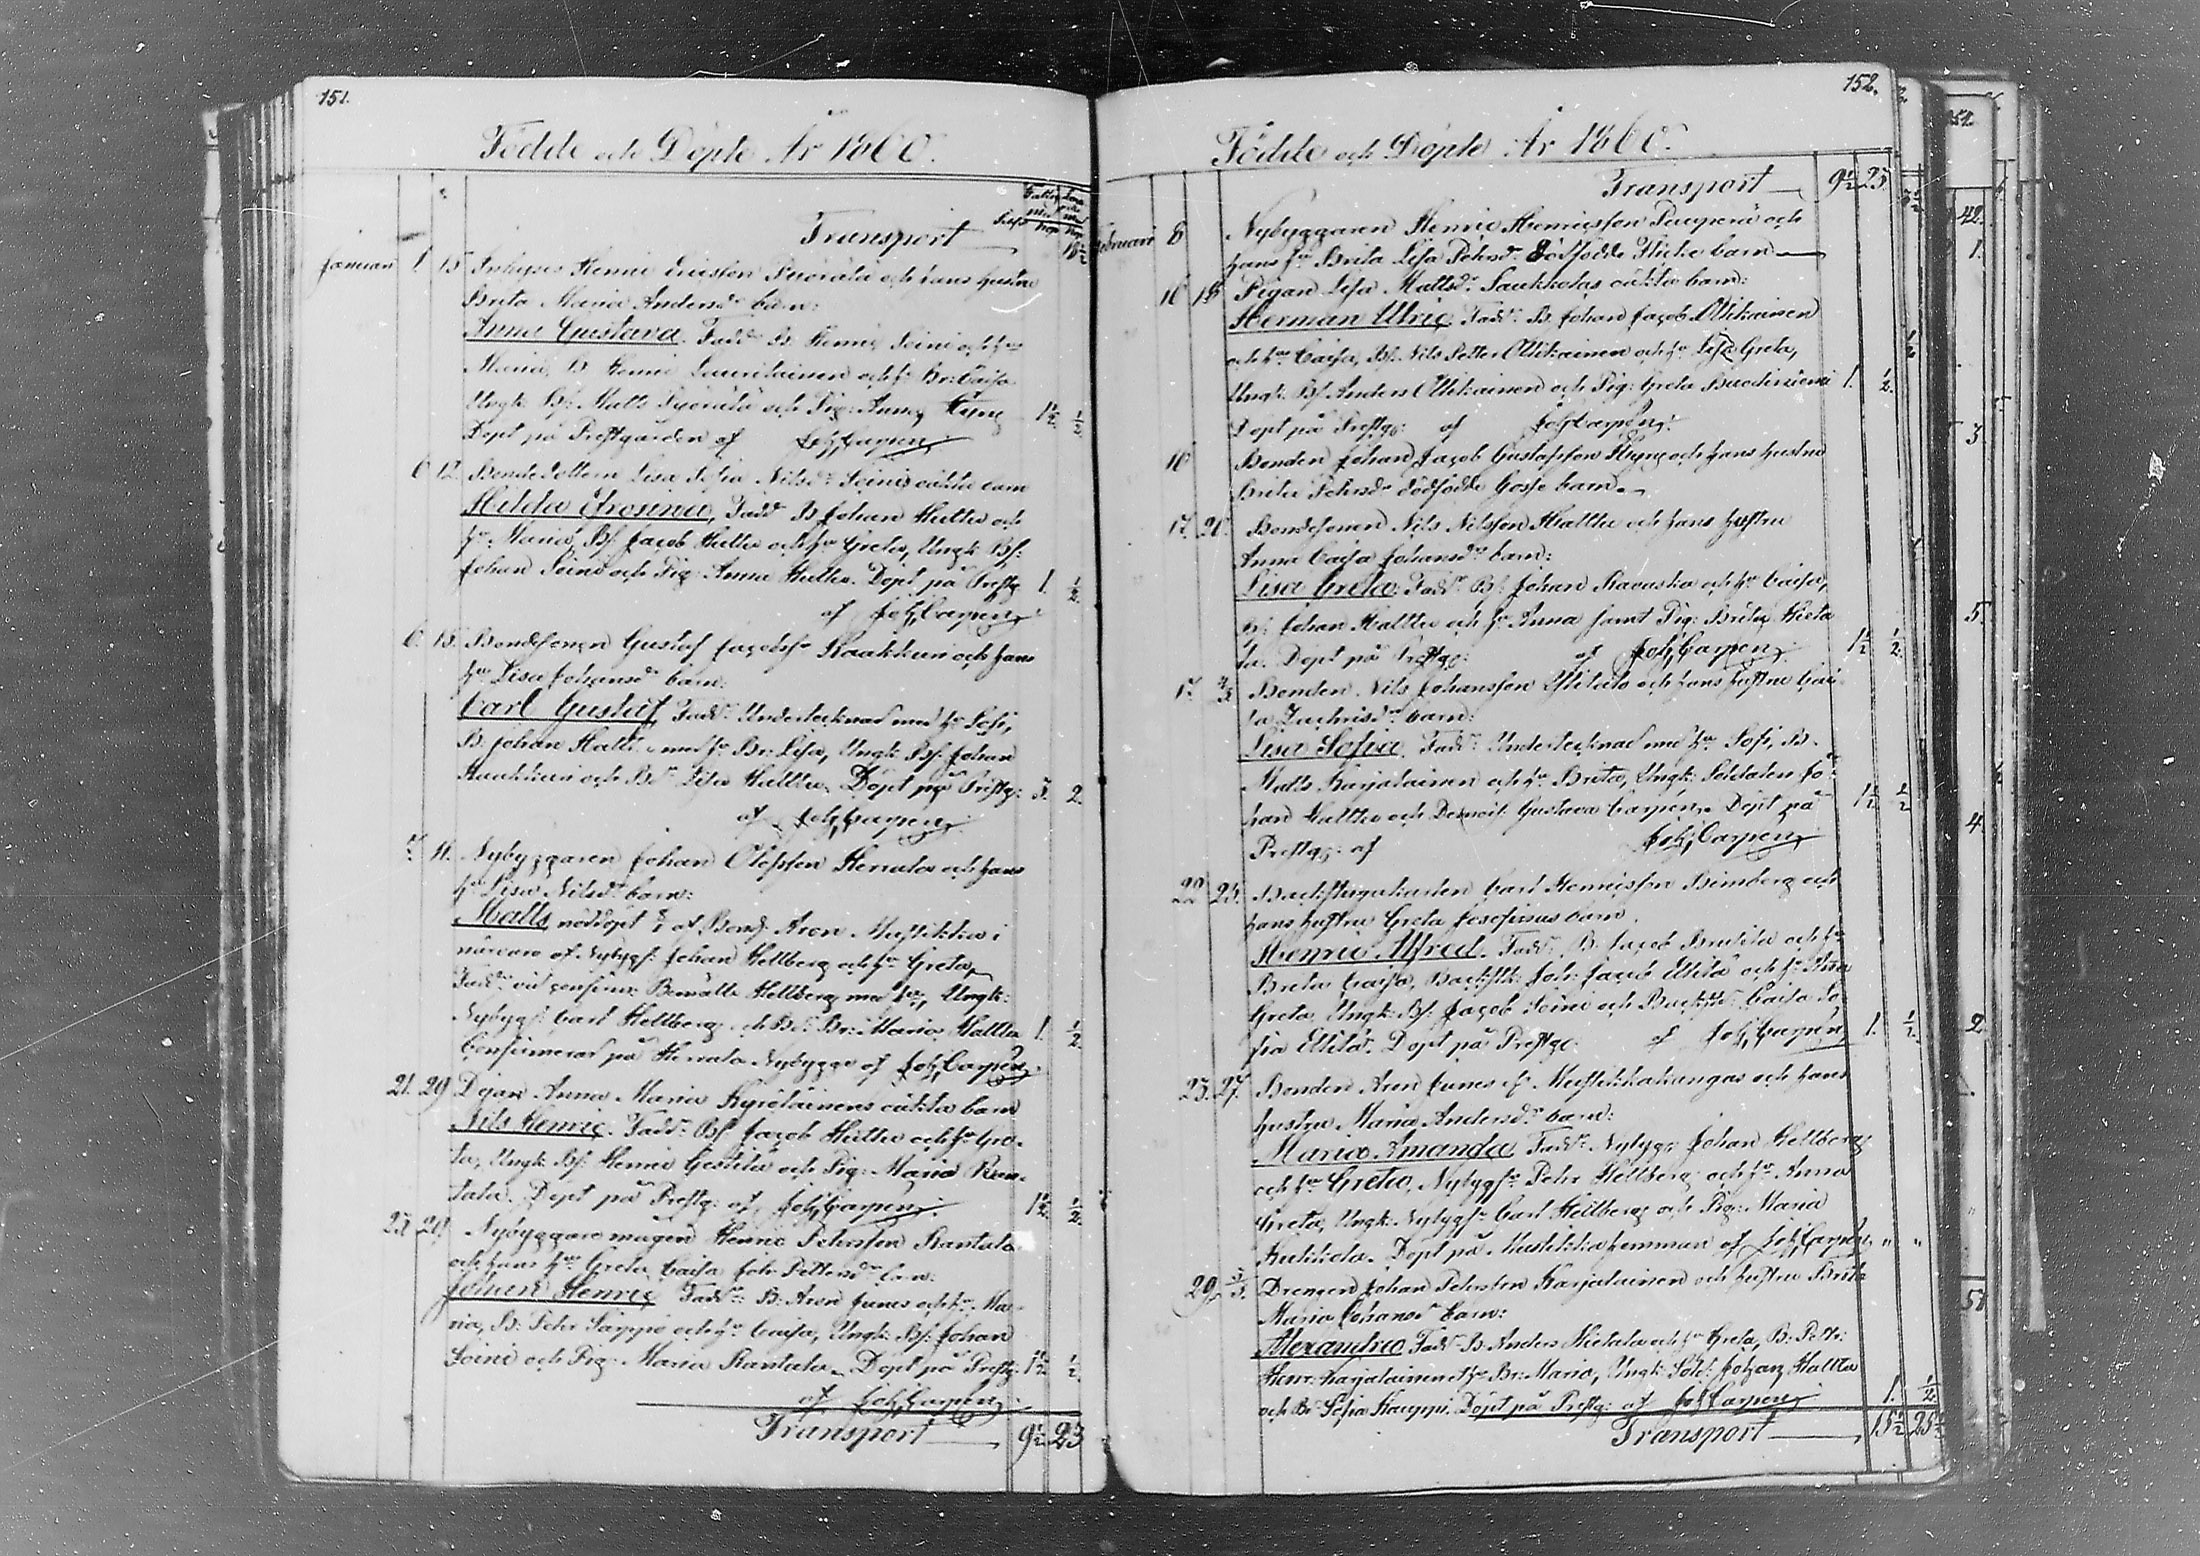 151.
Födde och Döpte År 1860.
Transport 18½
Januari 1. 15 Inhyses Henric Ericsson och hans hustru
Brita Maria Andersdr barn:
Anna Gustava. Fadd: B. Henric Soini och hu
Maria, B. Henric Laurikainen och h. Br: Caisa
Ungk: Bs: Matts och Pig: Anna Kyng 1½ ½
Döpt på Prestgården af Joh, Carpen.
6. 12. Bondedottern Lisa Sofia Nilsdr Soinis oäkta barn
Hilda Efrosina, Fadd: B. Johan Hultu och
hu Maria, Bs. Jacob Hultu och hu Greta, Ungk: Bs:
Johan Soini och Pig: Anna Hultu. Döpt på Prestg: 1. ½
af Joh, Carpen
6. 15. Bondesonen Gustaf Jacobsn Kaakkuri och hans
hu Lisa Johansdr barn:
Carl Gustaf, Fadd: Undertecknad med hu Sofi,
B. Johan Halttu med hu Br: Lisa, Ungk: Bs: Johan
Kaakkuri och Bdr Lisa Halttu. Döpt på Prestg: 3. 2.
af Joh, Carpen
7. 11. Nybyggaren Johan Olofsson Herrala och hans
hu Lisa Nilsdr barn:
Matts, nöddöpt af Bond: Aron Mustikka i
närvaro af Nybygs: Johan Hellberg och hu Greta,
Fadd: vid confirm: Hellberg med hu, Ungk:
Nybygs: Carl Hellberg och Bdr Br: Maria Halttu 1. ½
Confirmerad på Herrala Nybygge af Joh, Carpen
21. 29 Pigan Anna Maria Kyröläinens oäkta barn
Nils Henric. Fadd: Bs. Jacob Hultu och hu Gre-
ta, Ungk: Bs: Henric och Pig: Maria Ran-
tala. Döpt på Prestg: af Joh, Carpen. 1½ ½
23 29 Nybyggare mågen Henric Petersson Rantala
och hans hu Greta Caisa Joh: Pettersdr barn:
Johan Henric Fadd: B: Aron Junes och hu Ma-
ria, B: Pehr Sarppo och hu Caisa, Ungk: Bs: Johan
Soini och Pig: Maria Rantala. Döpt på Prestg: 1½ ½
af Joh, Carpen
Transport 9½ 23
152.
Födde och Döpte År 1860.
Transport 9½ 23
Februari 8 Nybyggaren Henric Henricsson och
hans hu Brita Lisa Pehrsdr dödfödde Flicke barn
16 18 Pigan Lisa Mattsdr Saukkolas oäkta barn:
Herman Ulric Fadd: B. Johan Jacob Ollikainen
och hu Caisa, Bs. Nils Petter Ollikainen och hu Lisa Greta,
Ungk: Bs: Anders Ollikainen och Pig: Greta 1. ½
Döpt på Prestg: af Joh, Carpen.
16 Bonden Johan Jacob Gustafsson Kyng och hans hustru
Brita Pehrsdr dödfödde Gosse barn.
17. 21. Bondesonen Nils Nilsson Halttu och hans hustru
Anna Caisa Johansdr barn:
Lisa Greta Fadd: Bs: Johan Ravaska och hu Caisa,
Bs: Johan Halttu och hu Anna samt Pig: Brita Hieta
la. Döpt på Prestg: af Joh, Carpen. 1½ ½
17. Bonden Nils Johansson Ylitalo och hans hustru Cai-
sa Zachrisdr barn:
Lisa Sofia. Fadd: Undertecknad med hu Sofi, B.
Matts Karjalainen och hu Brita, Ungk: Soldaten Jo-
han Halttu och Demois: Gustava Carpen. Döpt på 1½ ½
Prestg: af Joh, Carpen
22 25. Backstugukarlen Carl Henricsson Bimberg och
hans hustru Greta Josefinas barn.
Henric Alfred. Fadd: B. Jacob och hu
Brita Caisa, Backstk: Joh: Jacob Ellilä och hu Lisa
Greta, Ungk: Bs: Jacob Soini och Backstdr: Caisa So-
fia Ellilä. Döpt på Prestg: af Joh, Carpen, 1. ½
23. 27. Bonden Aron Junes på Mustikkakangas och hans
hustru Maria Andersdr barn:
Maria Amanda. Fadd: Nybygg: Johan Hellberg
och hu Greta, Nybygsn Pehr Hellberg och hu Anna
Greta, Ungk: Nybygsn Carl Hellberg och Pig: Maria
Kukkola. Döpt på Mustikka hemman af Joh, Carpen " "
29. Drengen Johan Petersson Karjalainen och hustru Brita
Maria Johansdr barn:
Alexandra Fadd: B. Anders Hietala och hu Greta, B: Pettr:
Henr: Karjalainen hu Br: Maria, Ungk: Sold: Johan Halttu
och Bdr Sofia Kauppi. Döpt på Prestg: af Joh, Carpen 1. ½
Transport 15½ 25½